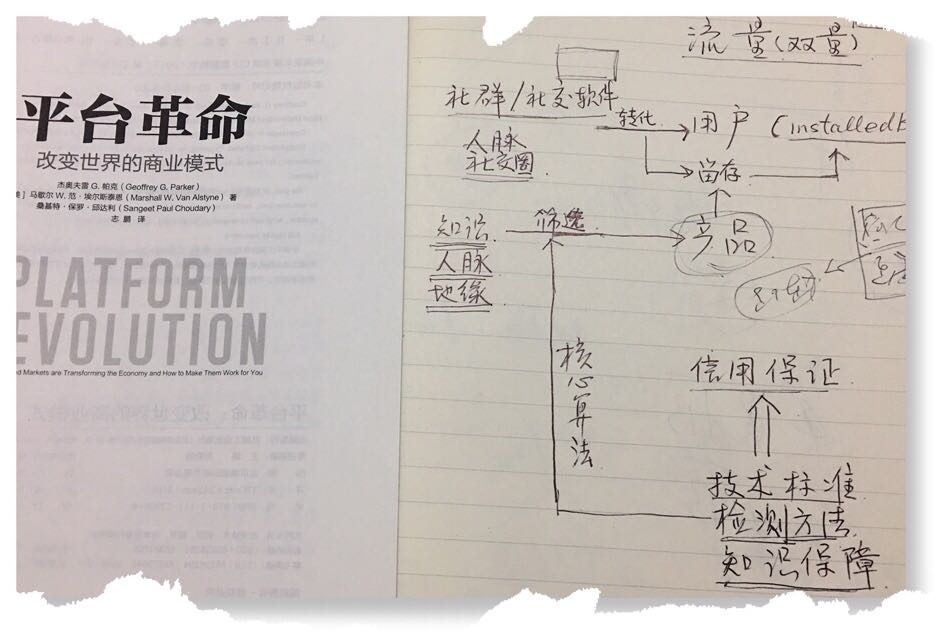 平台革命
改变世界的商业模式
杰奥夫雷 G. 帕克 (Geoffrey G. Parker)
］马歇尔 W. 范·埃尔斯泰恩 (Marshall W. Van Alstyne) 著
桑基特·保罗·邱达利 (Sangeet Paul Choudary)
志鹏 译
PLATFORM
EVOLUTION
Markets are Transforming the Economy and How to Make Them Work for You
流量(双量)
社群/社交软件
转化
用户 (installed
人脉
社交圈
留存
知识
筛选
产品
人脉
地缘
核心算法
信用保证
技术标准
检测方法
知识保障